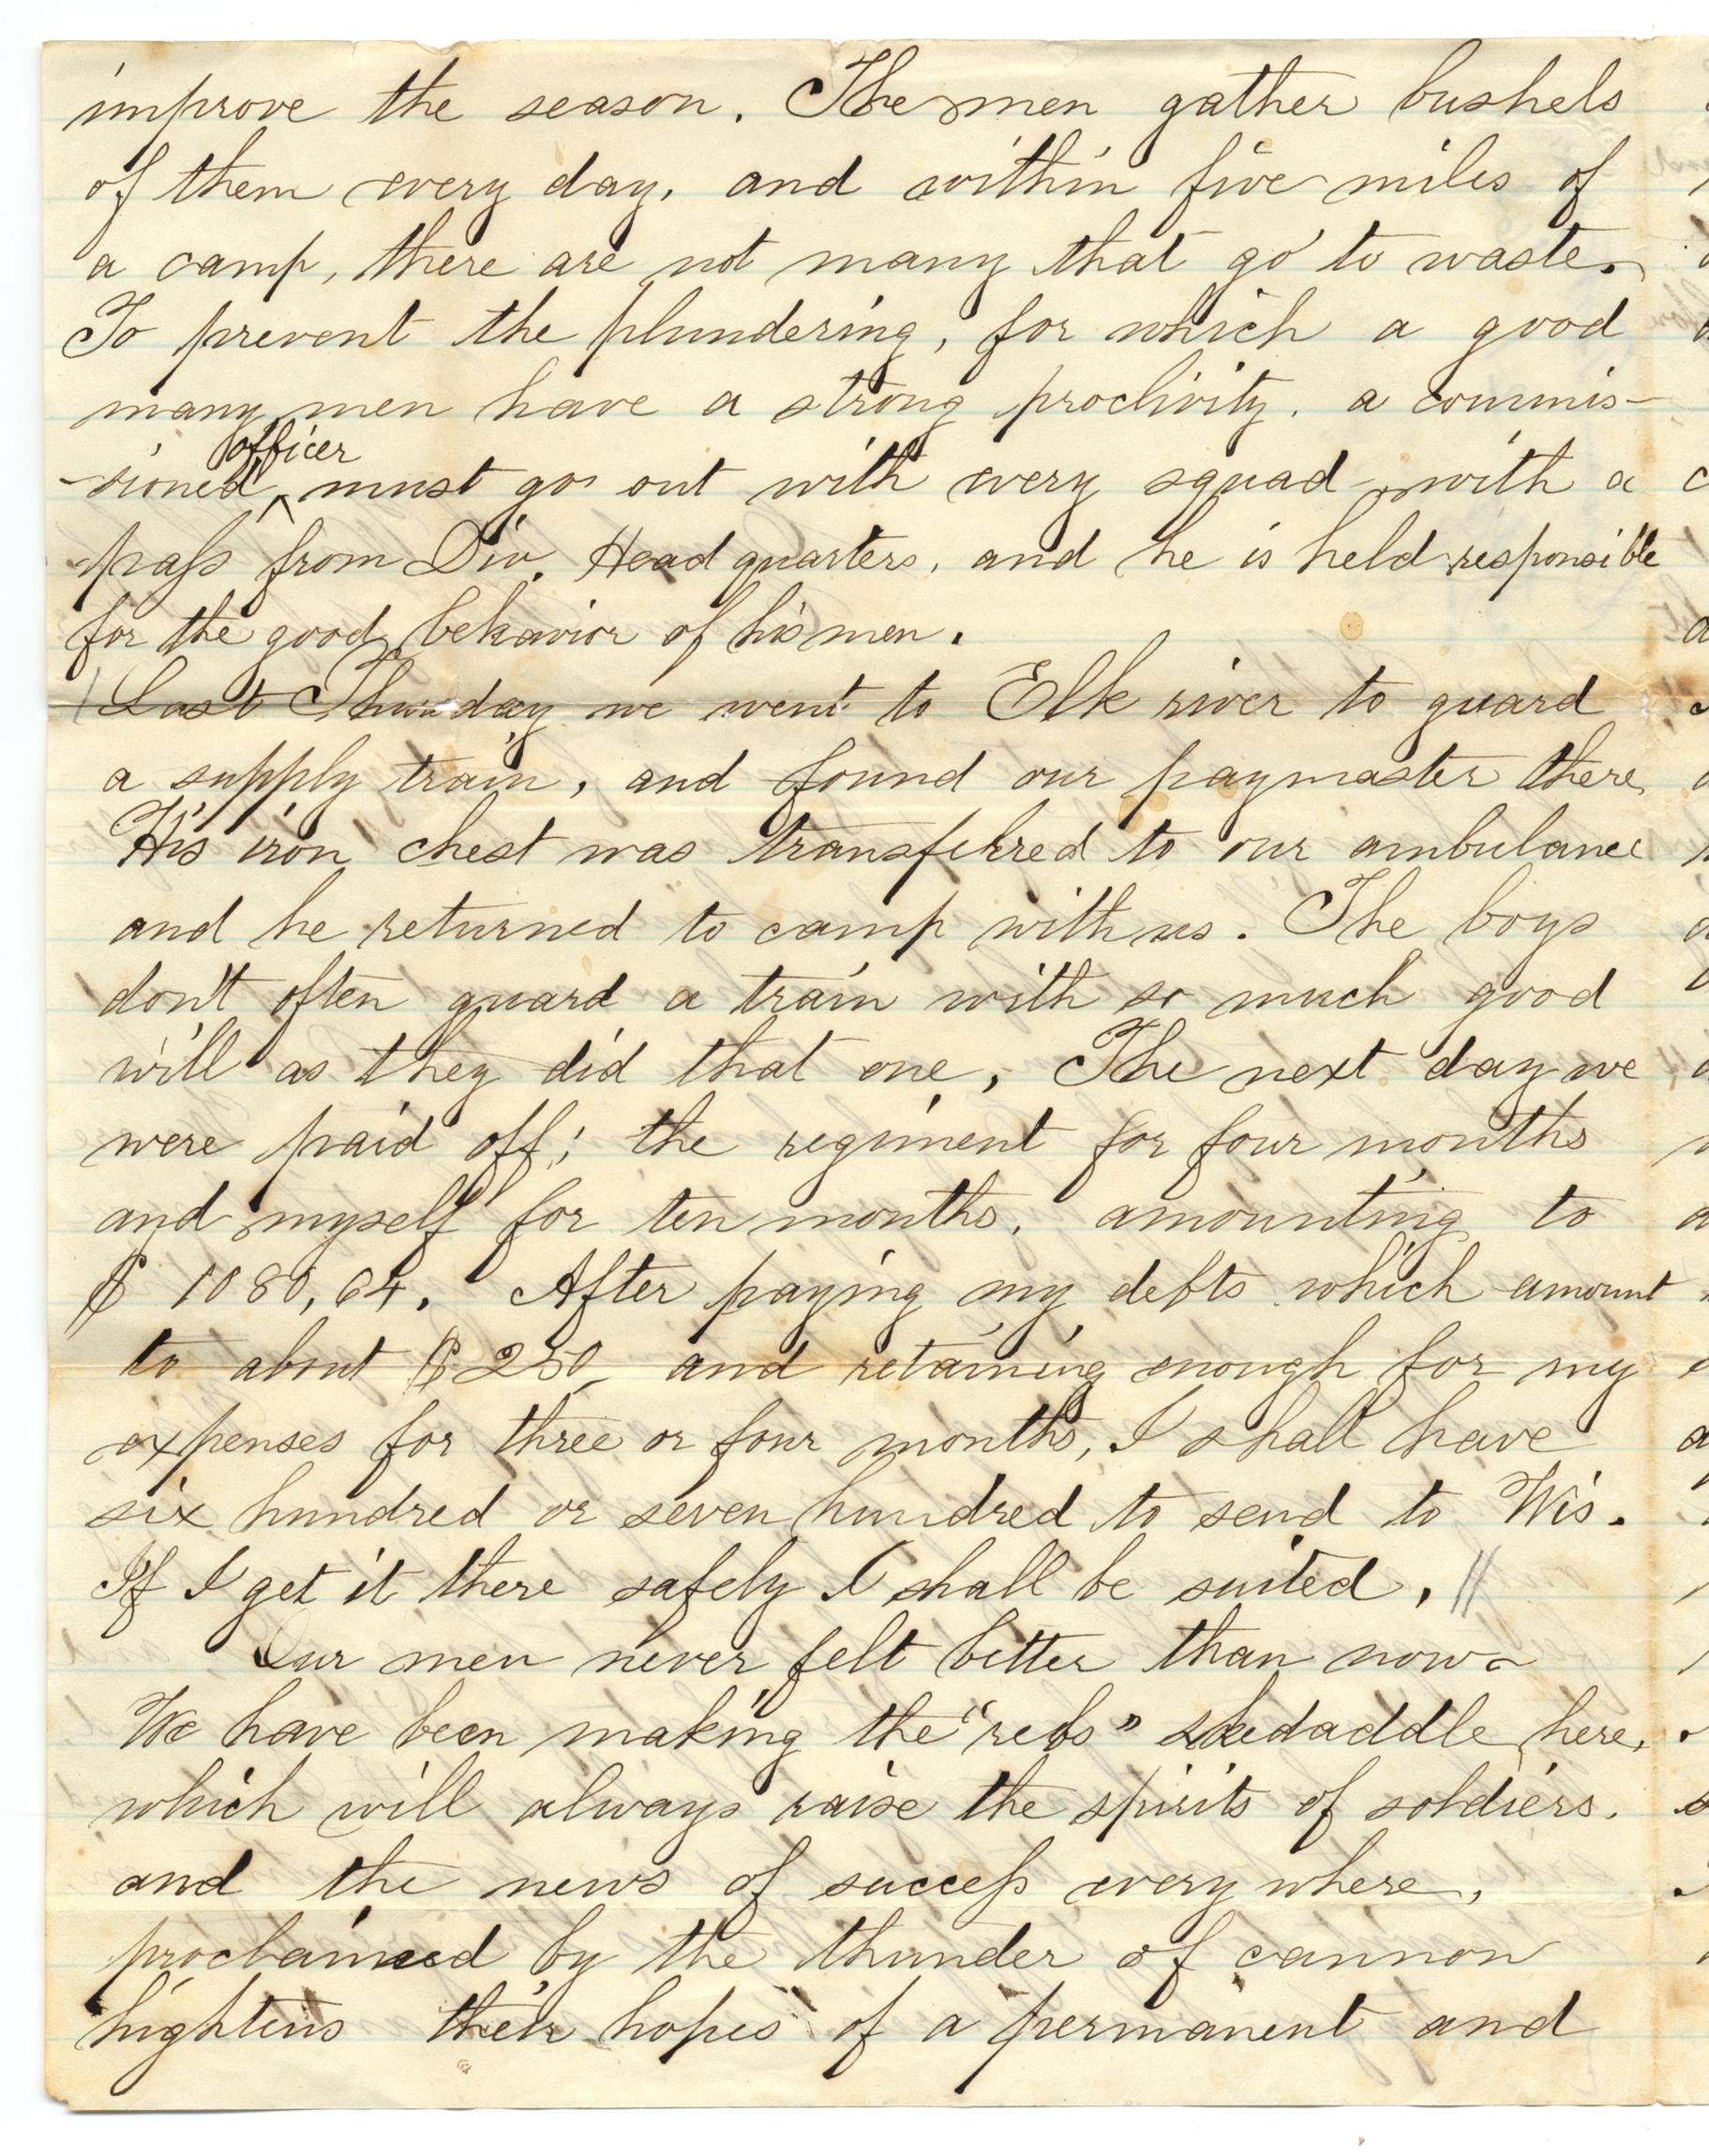 improve the season. The men gather bushels
of them every day, and within five miles of
a camp, there are not many that go to waste.
To prevent the plundering, for which a good
many men have a strong proclivity, a commis-
-sioned officer must go out with every squad with a
pass from Div. Head quarters, and he is held responsible
for the good behavior of his men.
Last Thursday we went to Elk river to guard
a supply train, and found our paymaster there
His iron chest was transferred to our ambulance
and he returned to camp with us. The boys
don't often guard a train with so much good
will as they did that one, The next day we
were paid off; the regiment for four months
and myself for ten months, amounting to
$ 1080,64. After paying my debts which amount
to about $250 and retaining enough for my
expenses for three or four months, I shall have
six hundred or seven hundred to send to Wis.
If I get it there safely I shall be suited. //
Our men never felt better than now
We have been making the "rebs" skedaddle here,
which will always raise the spirits of soldiers.
and the news of success everywhere,
proclaimed by the thunder of cannon
hightens their hopes of a permanent and